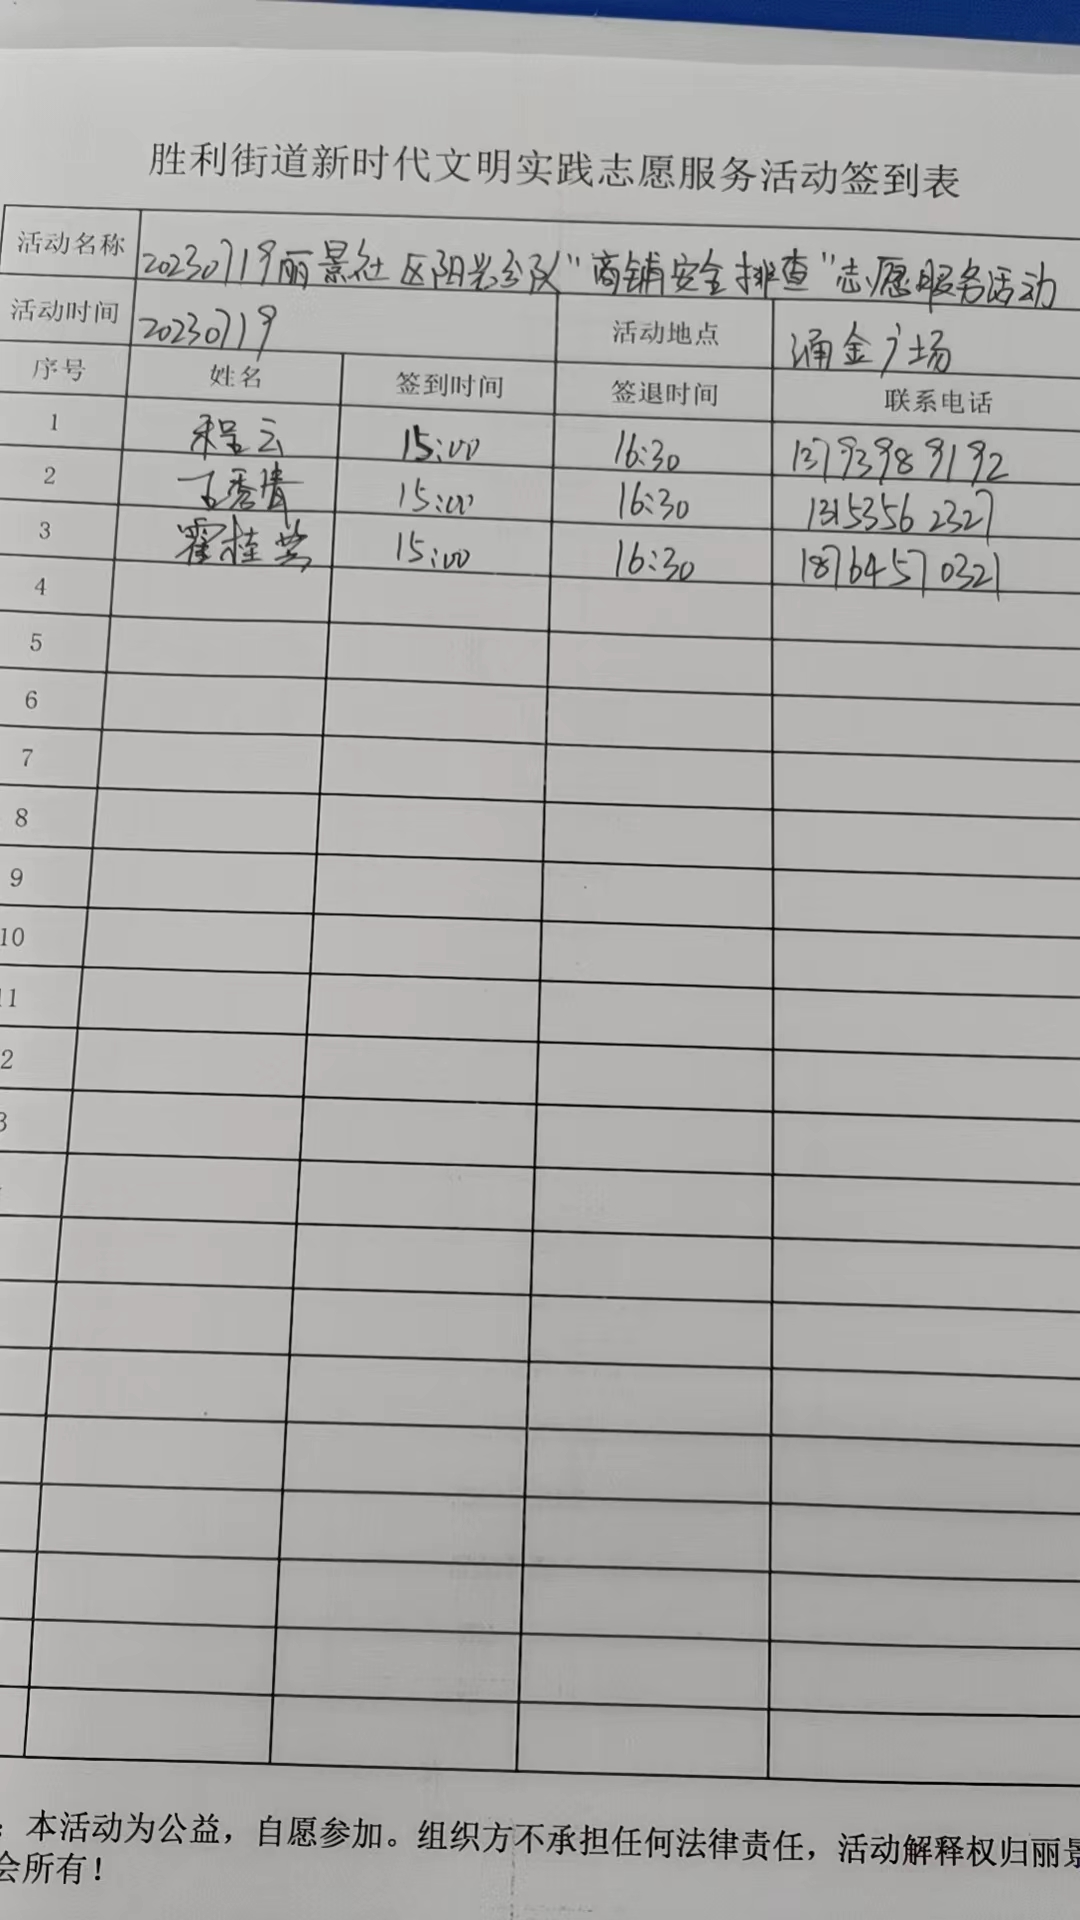 胜利街道新时代文明实践志愿服务活动签到表
活动名称 20230719丽景社区阳光分队“商铺安全排查”志愿服务活动
活动时间 20230719 活动地点 涌金广场
序号 姓名 签到时间 签退时间 联系电话
1 程云 15:00 16:30 13793989192
2 秀清 15:00 16:30 13153562327
3 霍桂芸 15:00 16:30 18764570321
4
5
6
7
8
9
10
11
2
3
：本活动为公益，自愿参加。组织方不承担任何法律责任，活动解释权归丽景
会所有！